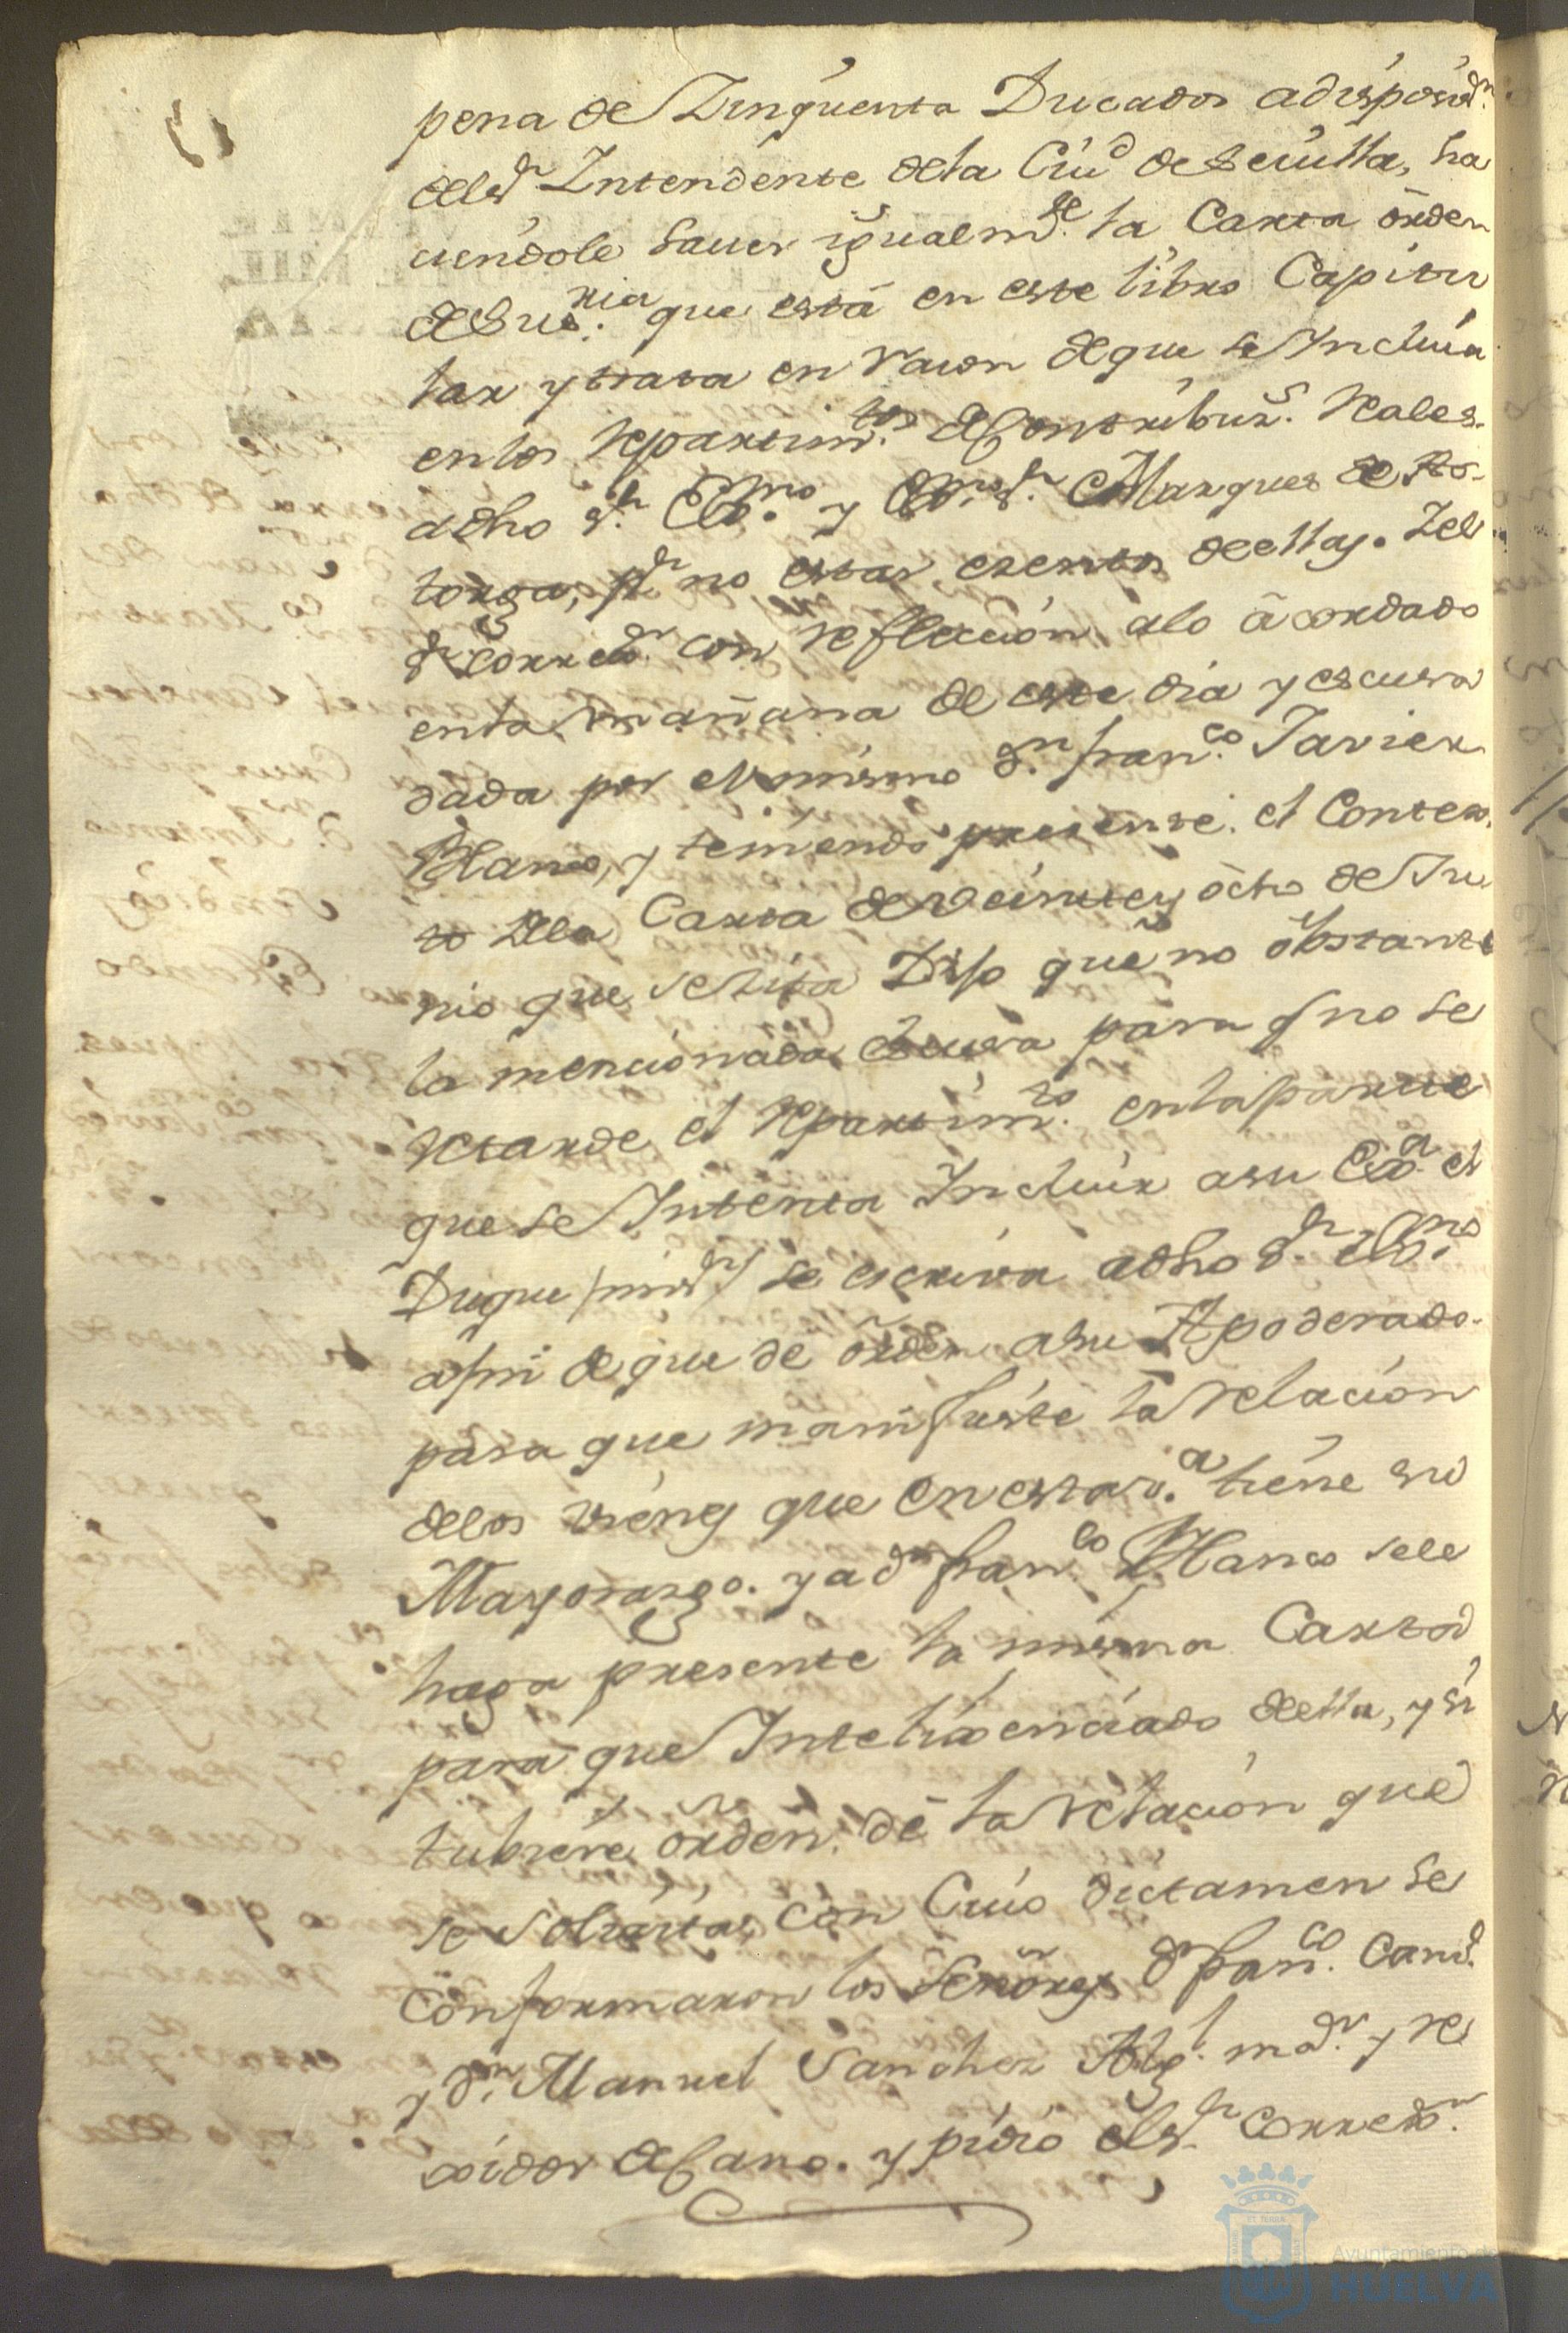 pena de Zinquenta Ducados a disposon.
del Sr. Intendente de la Ciud de Sevilla, ha
ciendole saver igualmte. la Carta orden
de Su Sria. que está en este libro Capitu
lar y trata en razon de que se Incluia
en los repartimtos. de Contribuzs. Reales
a dho Sr. Exmo. y Exmo. Sr. Marques de As
torga, pr. no estar exentos de ellas. Y el
Sr. Corredor. con reflecsion a lo acordado
en la mañana de este dia y escusa
dada por el mismo Dn. Franco. Javier
Blanco, y teniendo presente el Contex
to de la Carta de veinte y ocho de Ju
nio que se cita Dijo que no obstante
la mencionada escusa para q no se
retarde el repartimto. en la parte
que se Intenta Incluir a su Exa. el
Duque mi Sr. se escriva a dho Sr. Exmo
a fin de que de orden a su Apoderado
para que manifieste la relacion
de los vienes que en esta va. tiene su
Mayorazgo. y a Dn Franco Blanco se le
haga presente la misma Carta
para que Inteligenciado de ella, y si
tubiere orden, dé la relacion que
se solicita, con cuio dictamen se
conformaron los Señores Dn Franco. Cand.
y Dn. Manuel Sanchez Algl. mor. y Re
xidor Decano. y pidió el Sr Corredor.
Ayuntamiento de
HUELVA